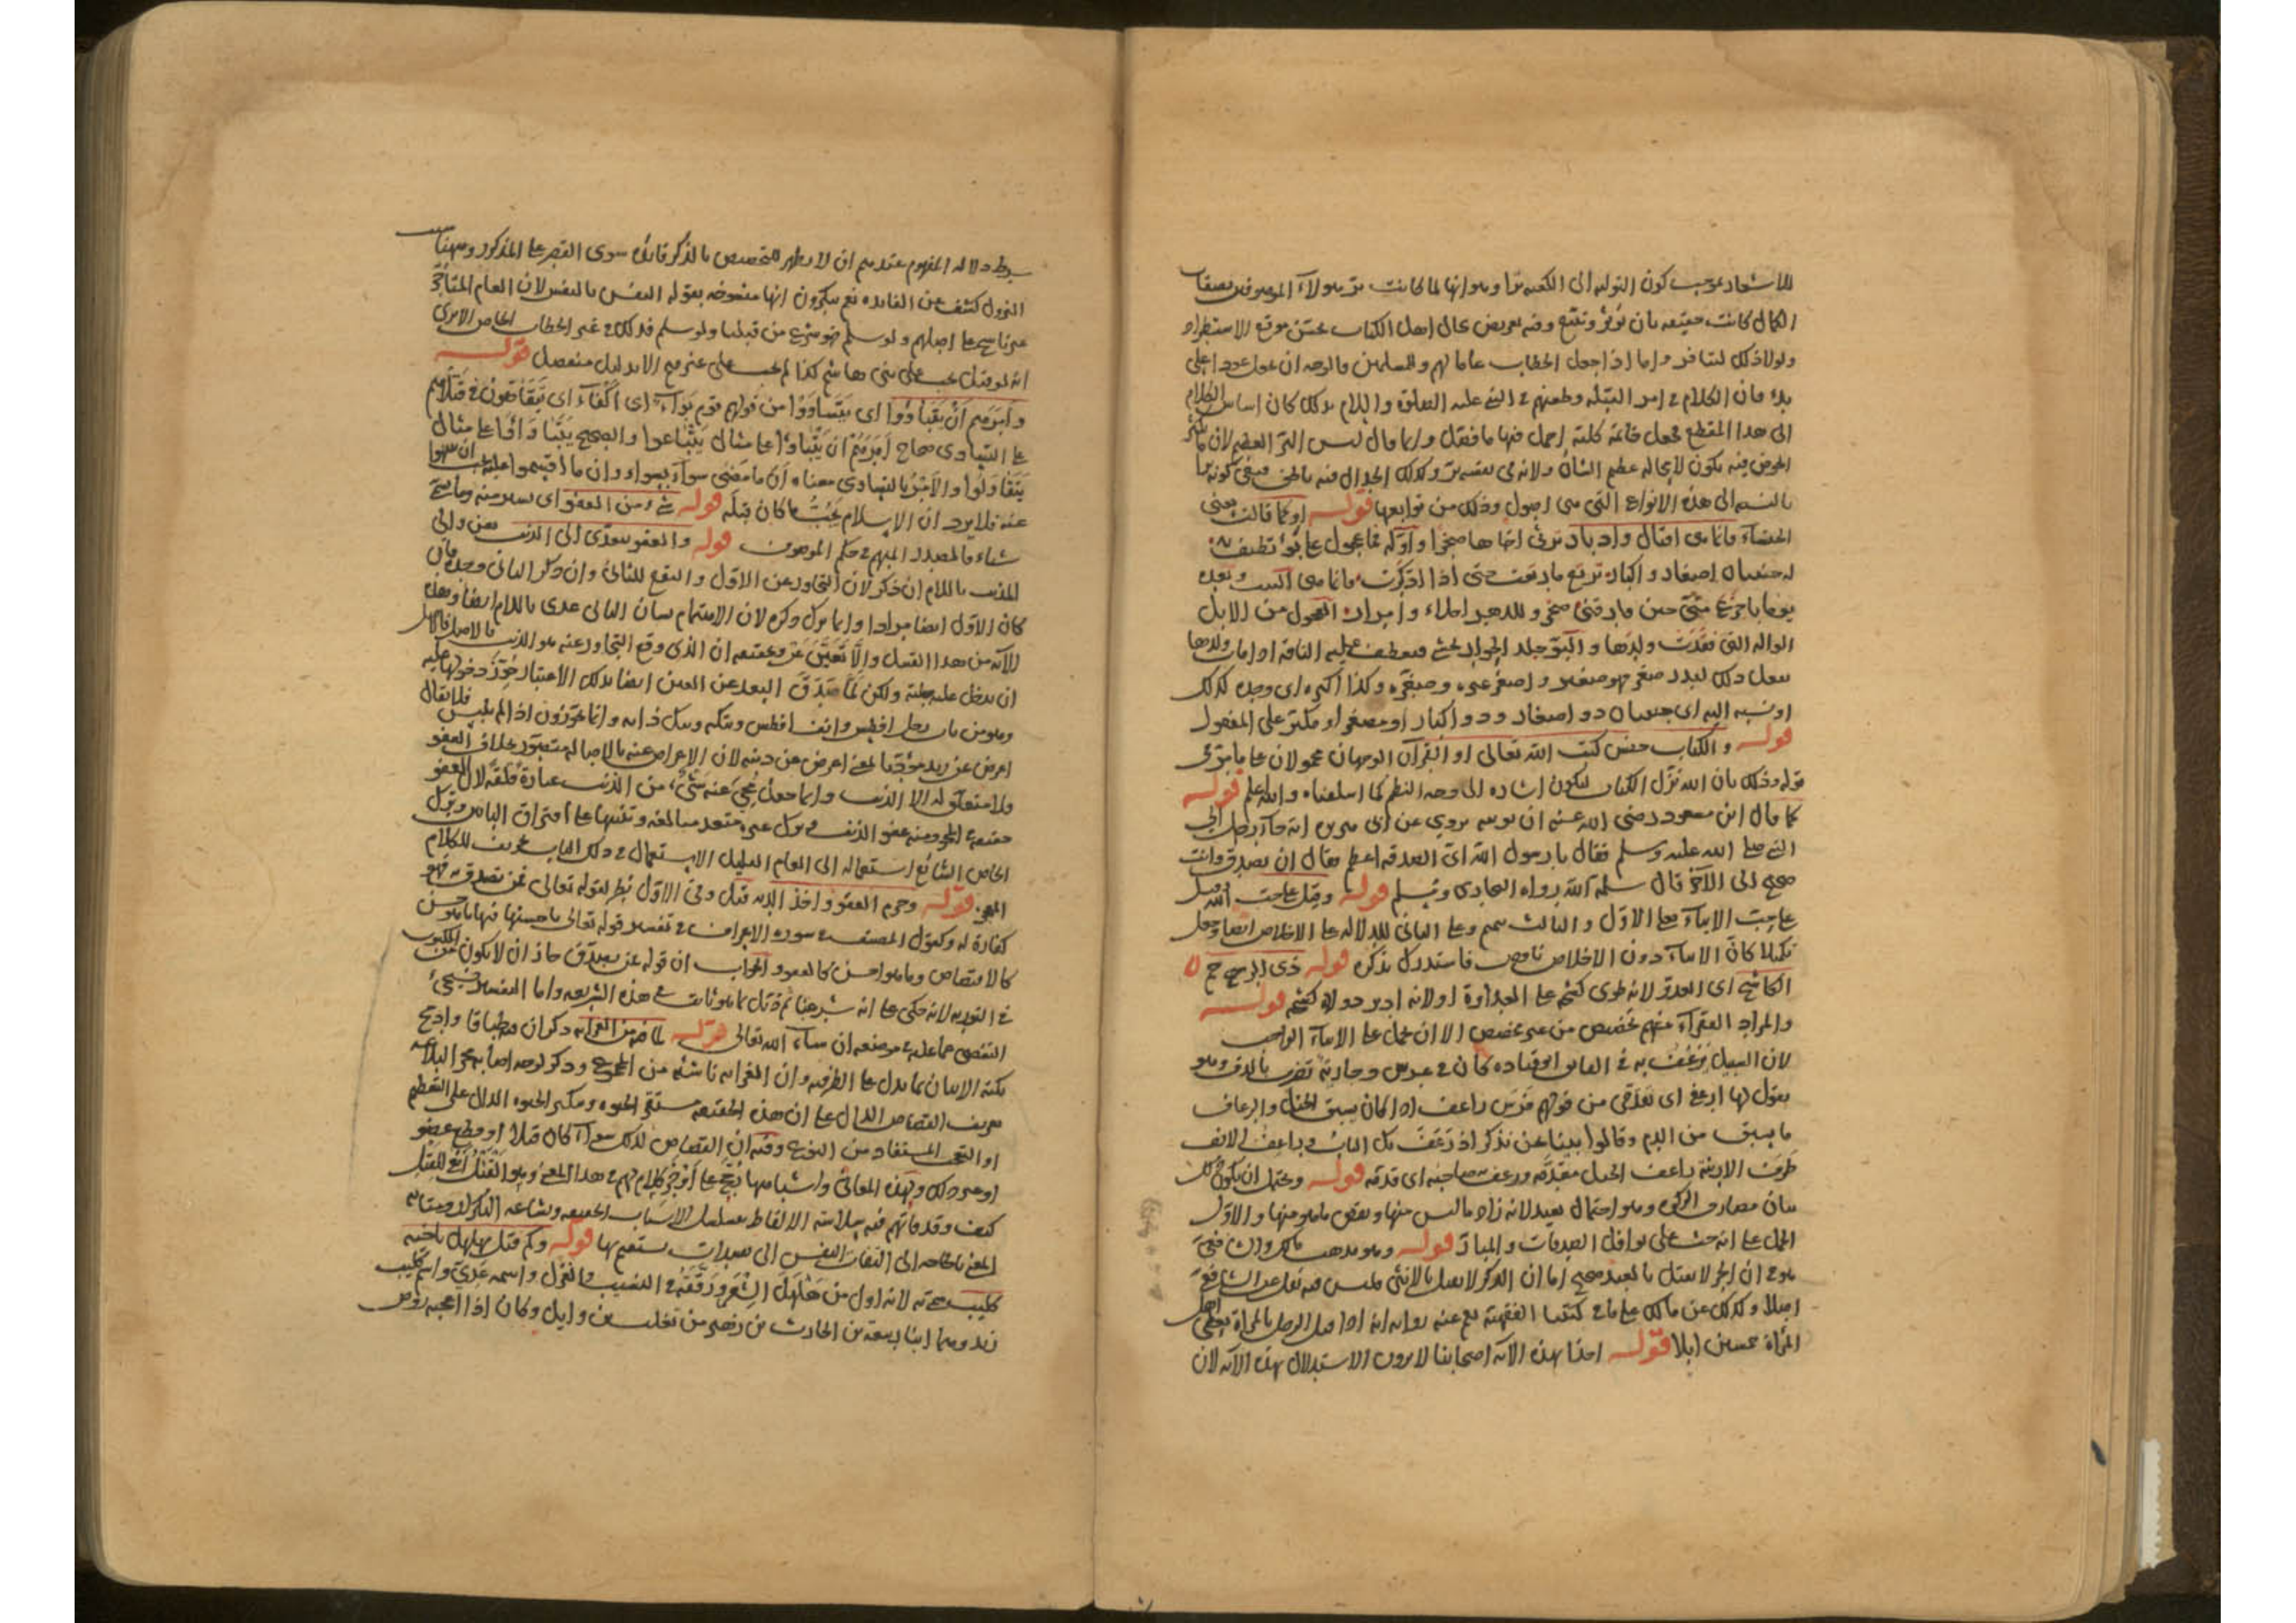 للاشعار بموجب كون التولية الى الكعبة برا وهو انها لما كانت بر هولاء الموصوفين بصفات
الكمال كانت حقيقة بان تؤثر وتتبع وفيه تعريض بحال اهل الكتاب بحسن موقع الاستطراد
ولولا ذلك لتنافر واما اذا جعل الخطاب عاما لهم وللمسلمين فالوجه ان
بدء فان الكلام في امر القبلة وطعنهم في النبي عليه الصلوة والسلام بذلك كان اساس الكلام
الى هذا المقطع فجعل خاتمة كلية اجمل فيها ما فصل وانما قال ليس البر العظيم لان ما يكثر
الخوض فيه يكون لا محالة عظيم الشان ولانه في نفسه بر وكذلك الجدال فيه بالحق فنفى كونه برا
بالنسبة الى هذه الانواع التي هي اصول وذلك من توابعها قوله او كما قالت يعني
الخنساء فانما هي اقبال وادبار ترثى اخاها صخرا واوله فما عجول على بو تطيف به
له حنينان اصغار واكبار ترتع ما رتعت حتى اذا ادكرت فانما هي البيت وبعده
يوما باجزع مني حين فارقني صخر وللدهر احلاء وامرار العجول من الابل
الواله التي فقدت ولدها والبو جلد الحوار يحشى فيعطف عليه الناقة اذا مات ولدها
يفعل ذلك لتدر صغر فهو صغير واصغر غيره وصغره وكذا اكبره اي وجده كذلك
او نسبه اليه اي حنينان ذو اصغار وذو اكبار او مصغر او مكبر على المفعول
قوله والكتاب جنس كتب الله تعالى او القرآن الوجهان محمولان على ما مر في
قوله وذلك بان الله نزل الكتاب ليكون اشارة الى وجه النظم كما اسلفناه والله اعلم قوله
كما قال ابن مسعود رضي الله عنه ان توتيه يروى عن ابي هريرة انه جاء رجل الى
النبي صلى الله عليه وسلم فقال يا رسول الله اي الصدقة اعظم فقال ان تصدق وانت
صحيح الى الآخر قال سلمه الله رواه البخاري ومسلم قوله وقيل على حب الله وقيل
على حب الايتاء فعلى الاول والثالث تتميم وعلى الثاني للدلالة على الاخلاص ايضا وجعل
تكميلا كان الايتاء دون الاخلاص ناقص فاستدرك بذكره قوله ذي الرحم
الكاشح اي العدو لانه طوى كشحه على العداوة او لانه ادبر وولاه كشحه قوله
والمراد الفقراء منهم تخصيص من غير مخصص الا ان يحمل على الايتاء الواجب
لان السبيل يرعف به في الفائق ابو قتادة كان في عرس وجارية تضرب بالدف وهو
يقول لها ارعفي اي تقدمي من قولهم فرس راعف اذا كان يسبق الخيل والرعاف
ما يسبق من الدم وقالوا بينا نحن نذكر اذ رعف بك الباب والراعف الانف
طرف الارنبة راعف الجبل مقدمه ورعف به صاحبه اي قدمه قوله ويحتمل ان يكون ذلك
بيان مصارف الزكوة وهو احتمال بعيد لانه زاد ما ليس منها ونقص ما هو منها والاول
الحمل على انه حث على نوافل الصدقات والمبار قوله وهو مذهب مالك والشافعي
هو ان الحر لا يقتل بالعبد صحيح اما ان الذكر لا يقتل بالانثى فليس فيه نقل عن الشافعي
اصلا وكذلك عن مالك على ما في كتبنا الفقهية نعم عنه رواية انه اذا قتل الرجل بالمرأة يعطى اهل
المرأة خمسين ابلا قوله اخذا بهذه الآية اصحابنا لا يرون الاستدلال بهذه الآية لان
شرط دلالة المفهوم عندهم ان لا يظهر للتخصيص بالذكر فائدة سوى القصر على المذكور وههنا سبب
النزول كشف عن الفائدة نعم ينكرون انها منسوخة بقوله النفس بالنفس لان العام المتأخر
غير ناسخ على اصلهم ولو سلم فهو شرع من قبلنا ولو سلم فذلك في غير الخطاب الخاص الا ترى
انه لو قيل يجب على بني هاشم كذا لم يجب على غيرهم الا بدليل منفصل قوله
وامرهم ان يتباوؤا اي يتساووا من قولهم قوم بواء اي اكفاء اي يتقاصون في قتلاهم
على التساوي صحاح امرهم ان يتباوؤا على مثال يتباعوا والصحيح يتباوأوا على مثال
يتقاولوا والامر بالتساوي معناه ان ما مضى سواء بسواء وان ما اقيموا عليه يجب ان ينتهوا
عنه فلا يرد ان الاسلام يجب ما كان قبله قوله شيء من العفو اي يسير منه وما سمي
شيئا فالمصدر المبهم في حكم الموصوف قوله والعفو يتعدى الى الذنب بعن والى
المذنب باللام ان ذكر لان التجاوز عن الاول والنفع للثاني وان ذكر الثاني وحده فان
كان الاول ايضا مرادا وانما ترك ذكره لان الاهتمام بشأن الثاني عدى باللام ايضا وهذه
الآية من هذا القبيل والا تعين عن وحقيقته ان الذي وقع التجاوز عنه هو الذنب فالاصل
ان يدخل عليه عن ولكن لما صدق البعد عن العين ايضا بذلك الاعتبار جوز دخولها عليه
وهو من باب رجل افطس وانف افطس وانما يجوزون اذا لم يلبس فلا يقال
اعرض عن زيد مؤديا لمعنى اعرض عن ذنبه لان الاعراض عنه بالاصالة متصور بخلاف العفو
ولا متعلق له الا الذنب وانما جعل محي عنه شيء من الذنب عبارة قلقة لان العفو
حقيقة في المحو ومنه عفو الذنب في ترك غيره متعد مبالغة وتنبيها على افتراق البابين وترك
الخاص الشائع استعماله الى العام القليل الاستعمال في ذلك الباب تحريف للكلام
قوله وحرم العفو واخذ الدية قيل وفي الاول نظر لقوله تعالى فمن تصدق به فهو
كفارة له وكقول المصنف في سورة الاعراف في تفسير قوله تعالى باحسنها فيها ما هو حسن
كالاقتصاص وما هو احسن كالعفو والجواب ان قوله فمن تصدق جاز ان لا يكون من المكتوب
في التورية لانه حكى على انه شرعنا ثم قيل بما هو ثابت في هذه الشريعة واما التفسير فسيجيء
التقصي عما عليه في موضعه ان شاء الله تعالى قوله لما فيه من الغرابة ذكر ان فيه طباقا وادمج
نكتة الاتيان بما يدل على الظرفية وان الغرابة ناشئة من المجموع وذكر لوجه اصابة محز البلاغة
تعريف القصاص الدال على ان هذه الحقيقة مستتبع الحيوة وتنكير الحيوة الدال على التعظيم
او النوعي المستفاد من التنويع وفيه ان القصاص لذلك سواء كان قتلا او قطع عضو
او غير ذلك ولهذه المعاني واشباهها رجح على اوجز كلام لهم في هذا المعنى وهو القتل انفى للقتل
كيف وقد فاتهم فيه سلاسة الالفاظ بسلسل الاسباب الخفيفة وبشاعة التكرار
المعنى بالحاجة الى التفات النفس الى مقدرات يستقيم بها قوله وكم قتل مهلهل باخيه
كليب سمي به لانه اول من هلهل الشعر ورققه في النسيب والغزل واسمه عدي واسم كليب
زيد وهما ابنا ربيعة بن الحارث بن زهير من تغلب بن وايل وكان اذا اعجبه روض